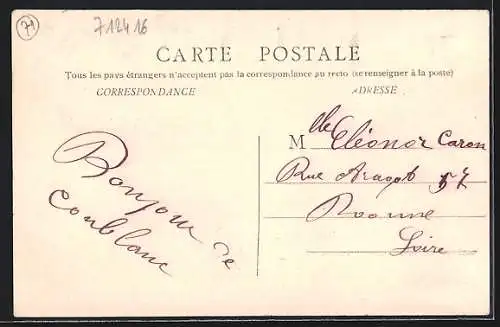 71
712416
CARTE POSTALE
Tous les pays étrangers n'acceptent pas la correspondance au recto (se renseigner à la poste)
CORRESPONDANCE
ADRESSE
Bonjour de
Coublanc
M lle Eléonor Caron
Rue Arago 57
Roanne
Loire